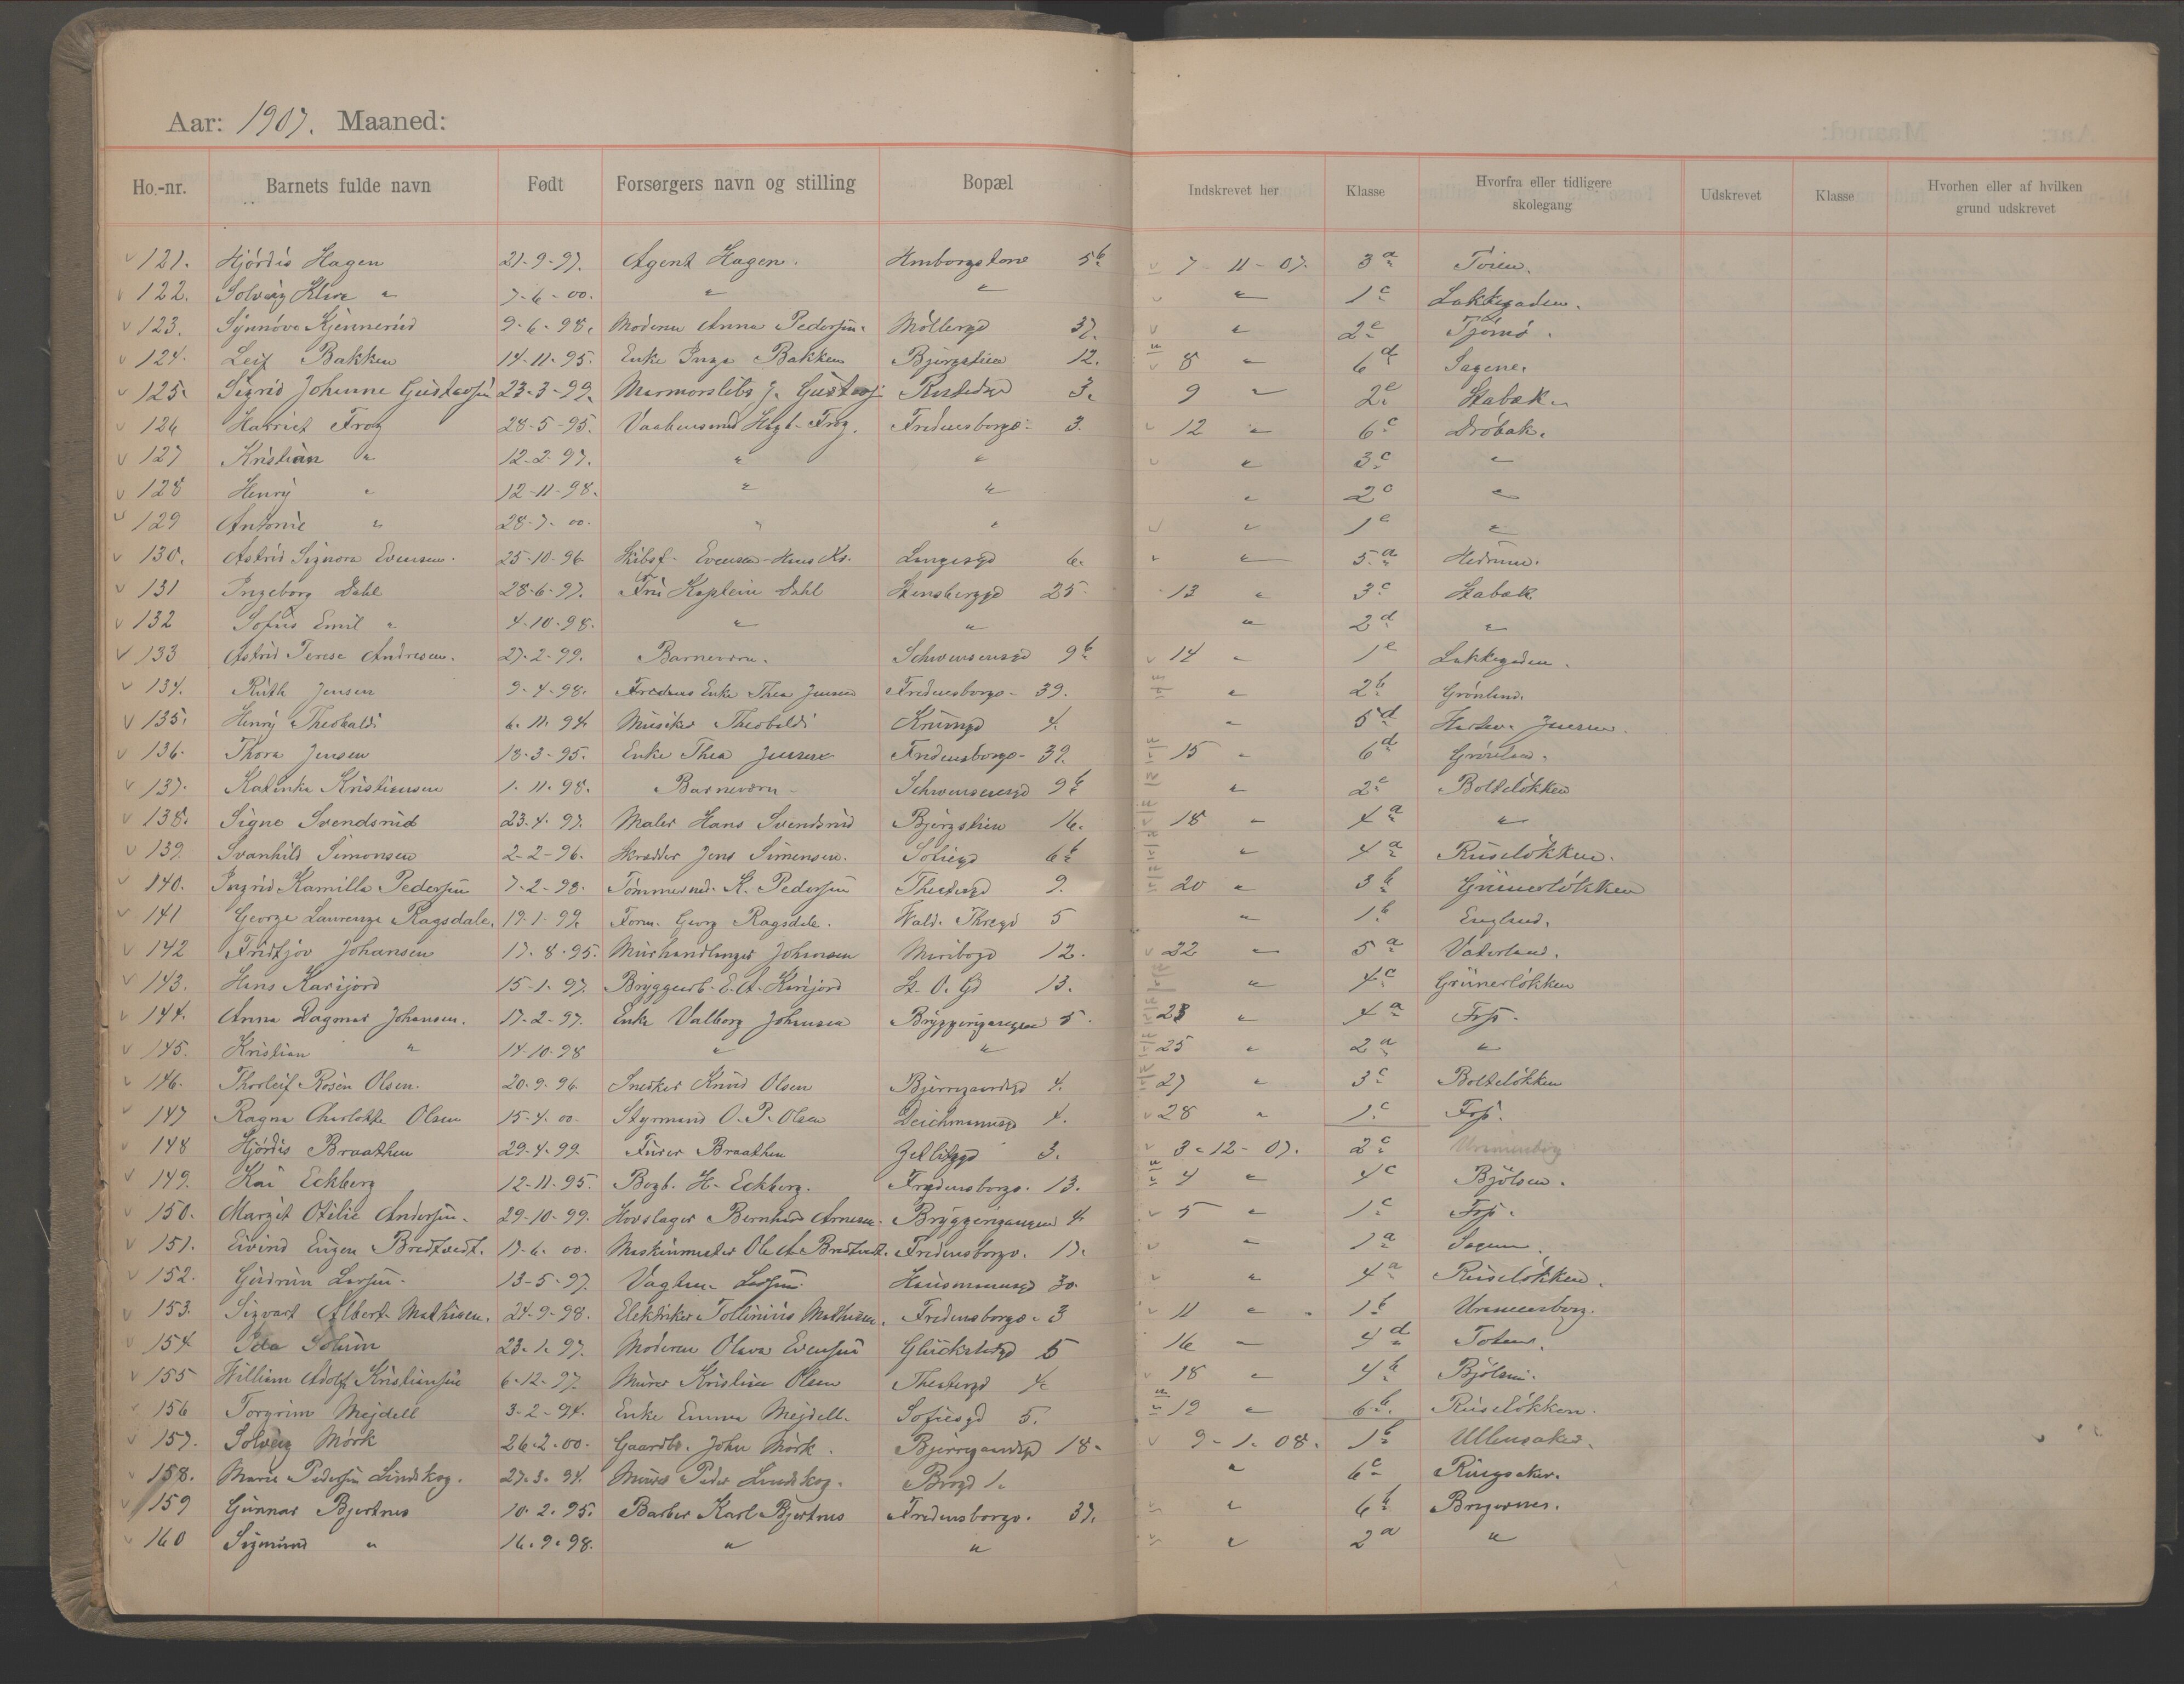 Aar: 1907. Maaned:
Ho.-nr. Barnets fulde navn Født Forsørgers navn og stilling Bopæl Indskrevet her Klasse Hvorfra eller tidligere skolegang Udskrevet Klasse Hvorhen eller af hvilken grund udskrevet
121. Hjördis Hagen 21-9-97. Agent Hagen. 5b 7-11-07. 3a Töien.
122. Solveig " 7-6-00. " " " 1c Lakkegaden.
123. Synnöve Kjennerud 9-6-98. Moderen Anna Pedersen. Möllergd 37. " 2c Tjömö.
124. Leif Bakken 14-11-95. Enke Inga Bakken Bjergstien 12. 8 " 6d Sagene.
125. Sigrid Johanne Gustavsen 23-3-99. J. Gustavs. Rostedsgd 3. 9 " 2c Stabæk.
126 Harriet Frog 28-5-95. Frog. Fredensborgv. 3. 12 " 6c Dröbak.
127 Kristian " 12-2-97. " " " 3c "
128 Henry " 12-11-98. " " " 2c "
129 Antonie " 28-7-00. " " " 1c "
130. Astrid Signora Evensen. 25-10-96. Skibsf. Evensen Langesgd 6. " " 5a Hedrum.
131 Ingeborg Dahl 28-6-97. Fru Kaptein Dahl Stensberggd 25. 13 " 3c Stabæk
132 Sofus Emil " 4-10-98. " " " 2d "
133 Astrid Terese Andresen. 27-2-99. Barneværn. Schwensensgd 9b 14 " 1e Lakkegaden.
134. Ruth Jensen 9-4-98. Enke Thea Jensen Fredensborgv. 39. " 2b Grönland.
135. Henry Theobaldi 6-11-94 Musiker Theobaldi Krumgd 4. " 5d
136. Thora Jensen 18-3-95. Enke Thea Jensen Fredensborgv. 39. 15 " 6d Grönland.
137. Katinka Kristiansen 1-11-98. Barneværn. Schwensensgd 9b " 2c Bolteløkken
138. Signe Svendsrud 23-4-97. Maler Hans Svendsrud Bjergstien 16. 18 " 4a "
139. Svanhild Simonsen 2-2-96. Skrædder Jens Simensen. Sofiegd 6b " 4a Ruselökken.
140. Ingrid Kamilla Pedersen 7-2-98. Tömmermd. K. Pedersen Theatergd 9. 20 " 3b Grünerlökken
141 George Laurenze Ragsdale. 19-1-99. Form. Georg Ragsdale. Wald. Thregd 5 " 1b England.
142 Fridtjov Johansen 17-8-95. Murhandlanger Johansen Maribogd 12. 22 " 5a Vaterland.
143. Hans Karijord 15-1-97. Bryggearb. E. A. Karijord St. O. Gd 13. " 4c Grünerlökken
144. Anna Dagmar Johansen. 17-2-97. Enke Valborg Johansen Bryggerigangen 5. 23 " 4a Frp.
145. Kristian " 14-10-98 " " 25 " 2a "
146. Thorleif Rosén Olsen. 20-9-96. Snedker Knud Olsen Bjerregaardsgd 4. 27 " 3c Bolteløkken
147 Ragna Charlotte Olsen 15-4-00. Styrmand O. P. Olsen Deichmansgd 4. 28 " 1c Frp.
148 Hjördis Braathen 29-4-99. Furer Braathen Zetlitzgd 3. 3-12-07. 2c Uranienborg
149. Kai Eckberg 12-11-95. Bogb. H. Eckberg. Fredensborgv. 13. 4 " 4c Bjölsen.
150. Margit Otilie Andersen. 29-10-99. Hovslager Bernhard Arnesen. Bryggerigangen 4. 5 " 1c Frp.
151. Eivind Eugen Bredtvedt. 17-6-00. Maskinmester Ole A. Bredtvedt. Fredensborgv. 17. " 1a Sagene.
152. Gudrun Larsen. 13-5-97. Larsen. Hausmannsgd 30. " 4a Ruselökken.
153. Sigvart Albert Mathisen. 24-9-98. Elektriker Mathisen. Fredensborgv. 3 11 " 1b Uranienborg.
154 Solum 23-1-97. Moderen Olava Evensen Glückstadgd 5 16 " 4d Toten.
155 William Adolf Kristiansen 6-12-97. Murer Kristian Olsen Theatergd 4. 18 " 4b Bjölsen.
156 Torgrim Mejdell 3-2-94. Enke Emma Mejdell. Sofiesgd 5. 19 " 6b. Ruselökken.
157. Solveig Mörk 26-2-00. Gaardbr. John Mörk. Bjerregaardsgd 18. 9-1-08. 1b Ullensaker.
158. Marie Pedersen Lindskog. 27-3-94. Murer Peder Lindskog. Brogd 1. " 6c Ringsaker.
159 Gunnar Bjertnes 10-2-95. Barber Karl Bjertnes Fredensborgv. 37. " 6b Bragernes.
160 Sigmund " 16-9-98. " " " 2a "